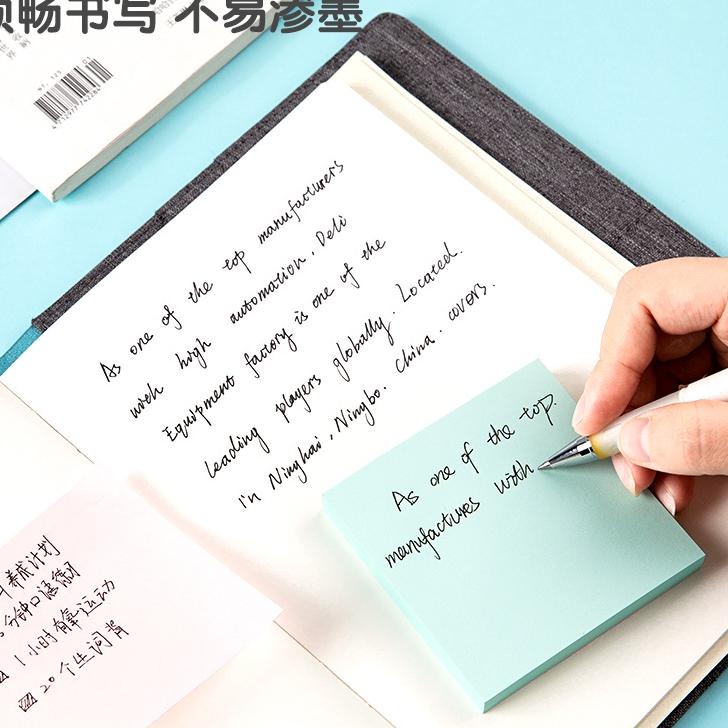 顺畅书写 不易渗墨
As one of the top manufacturers
with high automation, Deli
Equipment factory is one of the
leading players globally. Located.
in Ninghai, Ningbo. China. covers.
As one of the top.
manufactures width
养成计划
分钟口语练习
1小时有氧运动
20个生词背